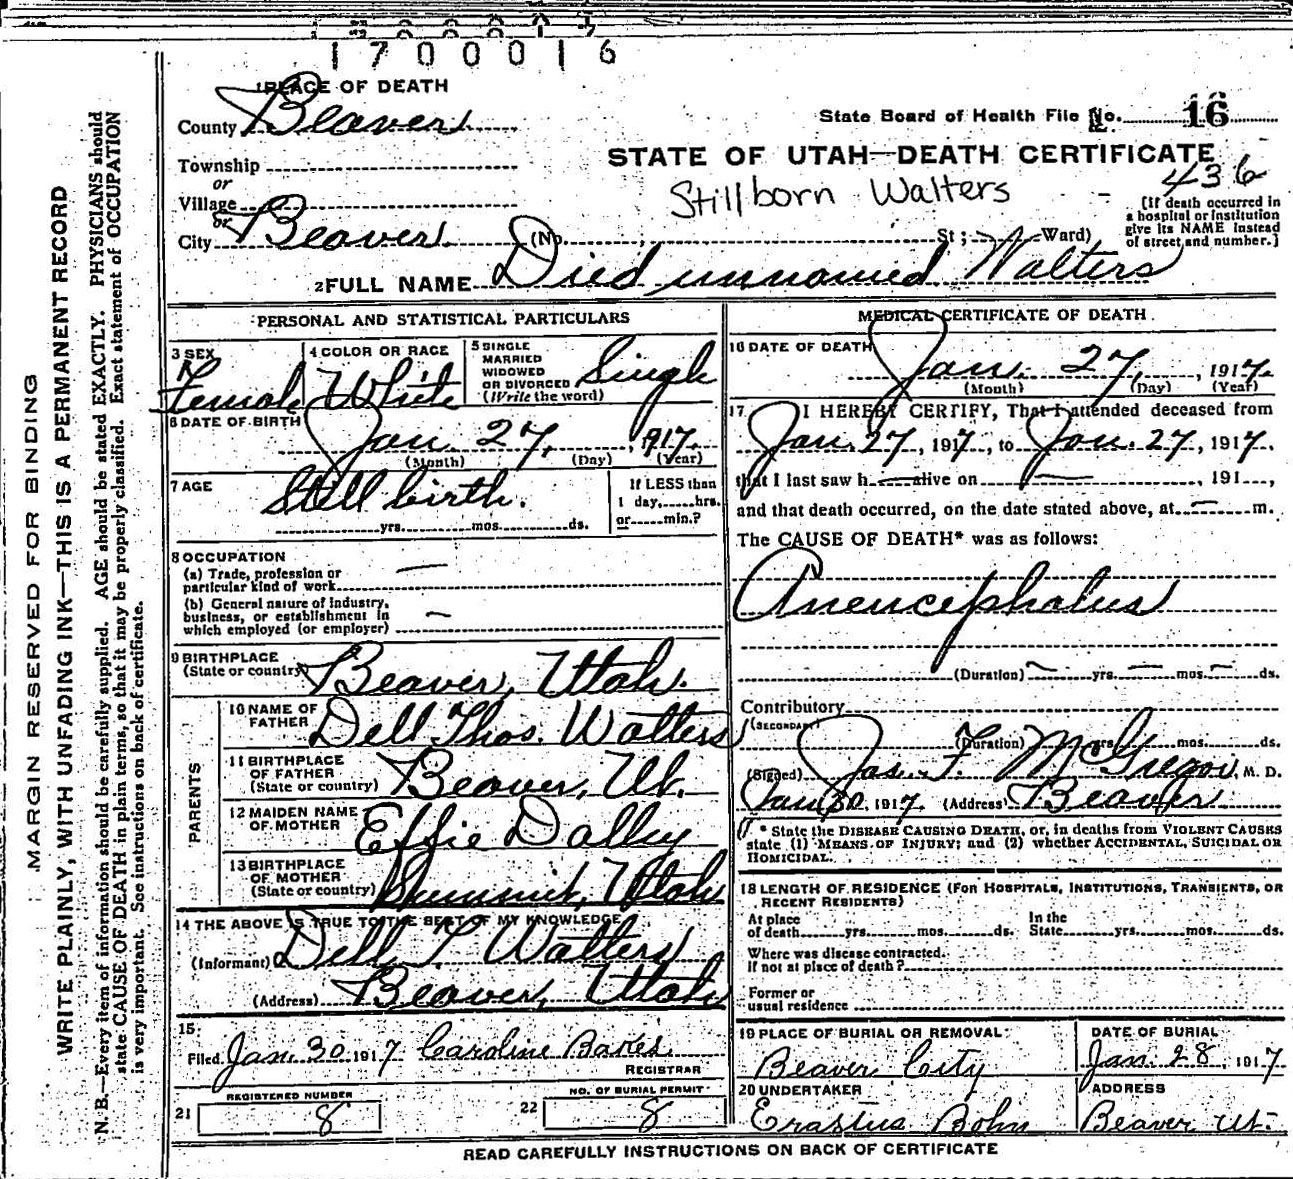 1700016
1 PLACE OF DEATH
County Beaver
State Board of Health File No. 16
Township
STATE OF UTAH—DEATH CERTIFICATE
or
Village
Stillborn Walters
436
or
City Beaver (No. St; Ward)
[If death occurred in
a hospital or institution
give its NAME instead
of street and number.]
2 FULL NAME Died unnamed Walters
PERSONAL AND STATISTICAL PARTICULARS
3 SEX
Female
4 COLOR OR RACE
White
5 SINGLE
MARRIED
WIDOWED
OR DIVORCED
(Write the word)
Single
6 DATE OF BIRTH
Jan. 27, 1917.
(Month) (Day) (Year)
7 AGE
Still birth.
yrs. mos. ds.
If LESS than
1 day, hrs.
or min.?
8 OCCUPATION
(a) Trade, profession or
particular kind of work —
(b) General nature of Industry,
business, or establishment in
which employed (or employer) —
9 BIRTHPLACE
(State or country) Beaver, Utah.
PARENTS
10 NAME OF
FATHER Dell Thos. Walters
11 BIRTHPLACE
OF FATHER
(State or country) Beaver, Ut.
12 MAIDEN NAME
OF MOTHER Effie Dalley
13 BIRTHPLACE
OF MOTHER
(State or country) Summit, Utah
14 THE ABOVE IS TRUE TO THE BEST OF MY KNOWLEDGE
(Informant) Dell T. Walters
(Address) Beaver, Utah
15
Filed Jan. 30 1917 Caroline
REGISTRAR
REGISTERED NUMBER
21 8
NO. OF BURIAL PERMIT
22 8
MEDICAL CERTIFICATE OF DEATH
16 DATE OF DEATH
Jan. 27, 1917.
(Month) (Day) (Year)
17 I HEREBY CERTIFY, That I attended deceased from
Jan. 27, 1917, to Jan. 27, 1917.
that I last saw h— alive on —, 191 ,
and that death occurred, on the date stated above, at — m.
The CAUSE OF DEATH* was as follows:
Anencephalus
(Duration) — yrs. — mos. — ds.
Contributory
(SECONDARY)
(Duration) yrs. mos. ds.
(Signed) Jas. F. McGregor, M. D.
Jan 30, 1917. (Address) Beaver
* State the DISEASE CAUSING DEATH, or, in deaths from VIOLENT CAUSES
state (1) MEANS OF INJURY; and (2) whether ACCIDENTAL, SUICIDAL OR
HOMICIDAL.
18 LENGTH OF RESIDENCE (FOR HOSPITALS, INSTITUTIONS, TRANSIENTS, OR
RECENT RESIDENTS)
At place
of death yrs. mos. ds.
In the
State yrs. mos. ds.
Where was disease contracted.
If not at place of death?
Former or
usual residence
19 PLACE OF BURIAL OR REMOVAL
Beaver City
DATE OF BURIAL
Jan. 28, 1917
20 UNDERTAKER
Erastus Bohn
ADDRESS
Beaver Ut.
READ CAREFULLY INSTRUCTIONS ON BACK OF CERTIFICATE
MARGIN RESERVED FOR BINDING
WRITE PLAINLY, WITH UNFADING INK—THIS IS A PERMANENT RECORD
N. B.—Every item of information should be carefully supplied. AGE should be stated EXACTLY. PHYSICIANS should
state CAUSE OF DEATH in plain terms, so that it may be properly classified. Exact statement of OCCUPATION
is very important. See instructions on back of certificate.